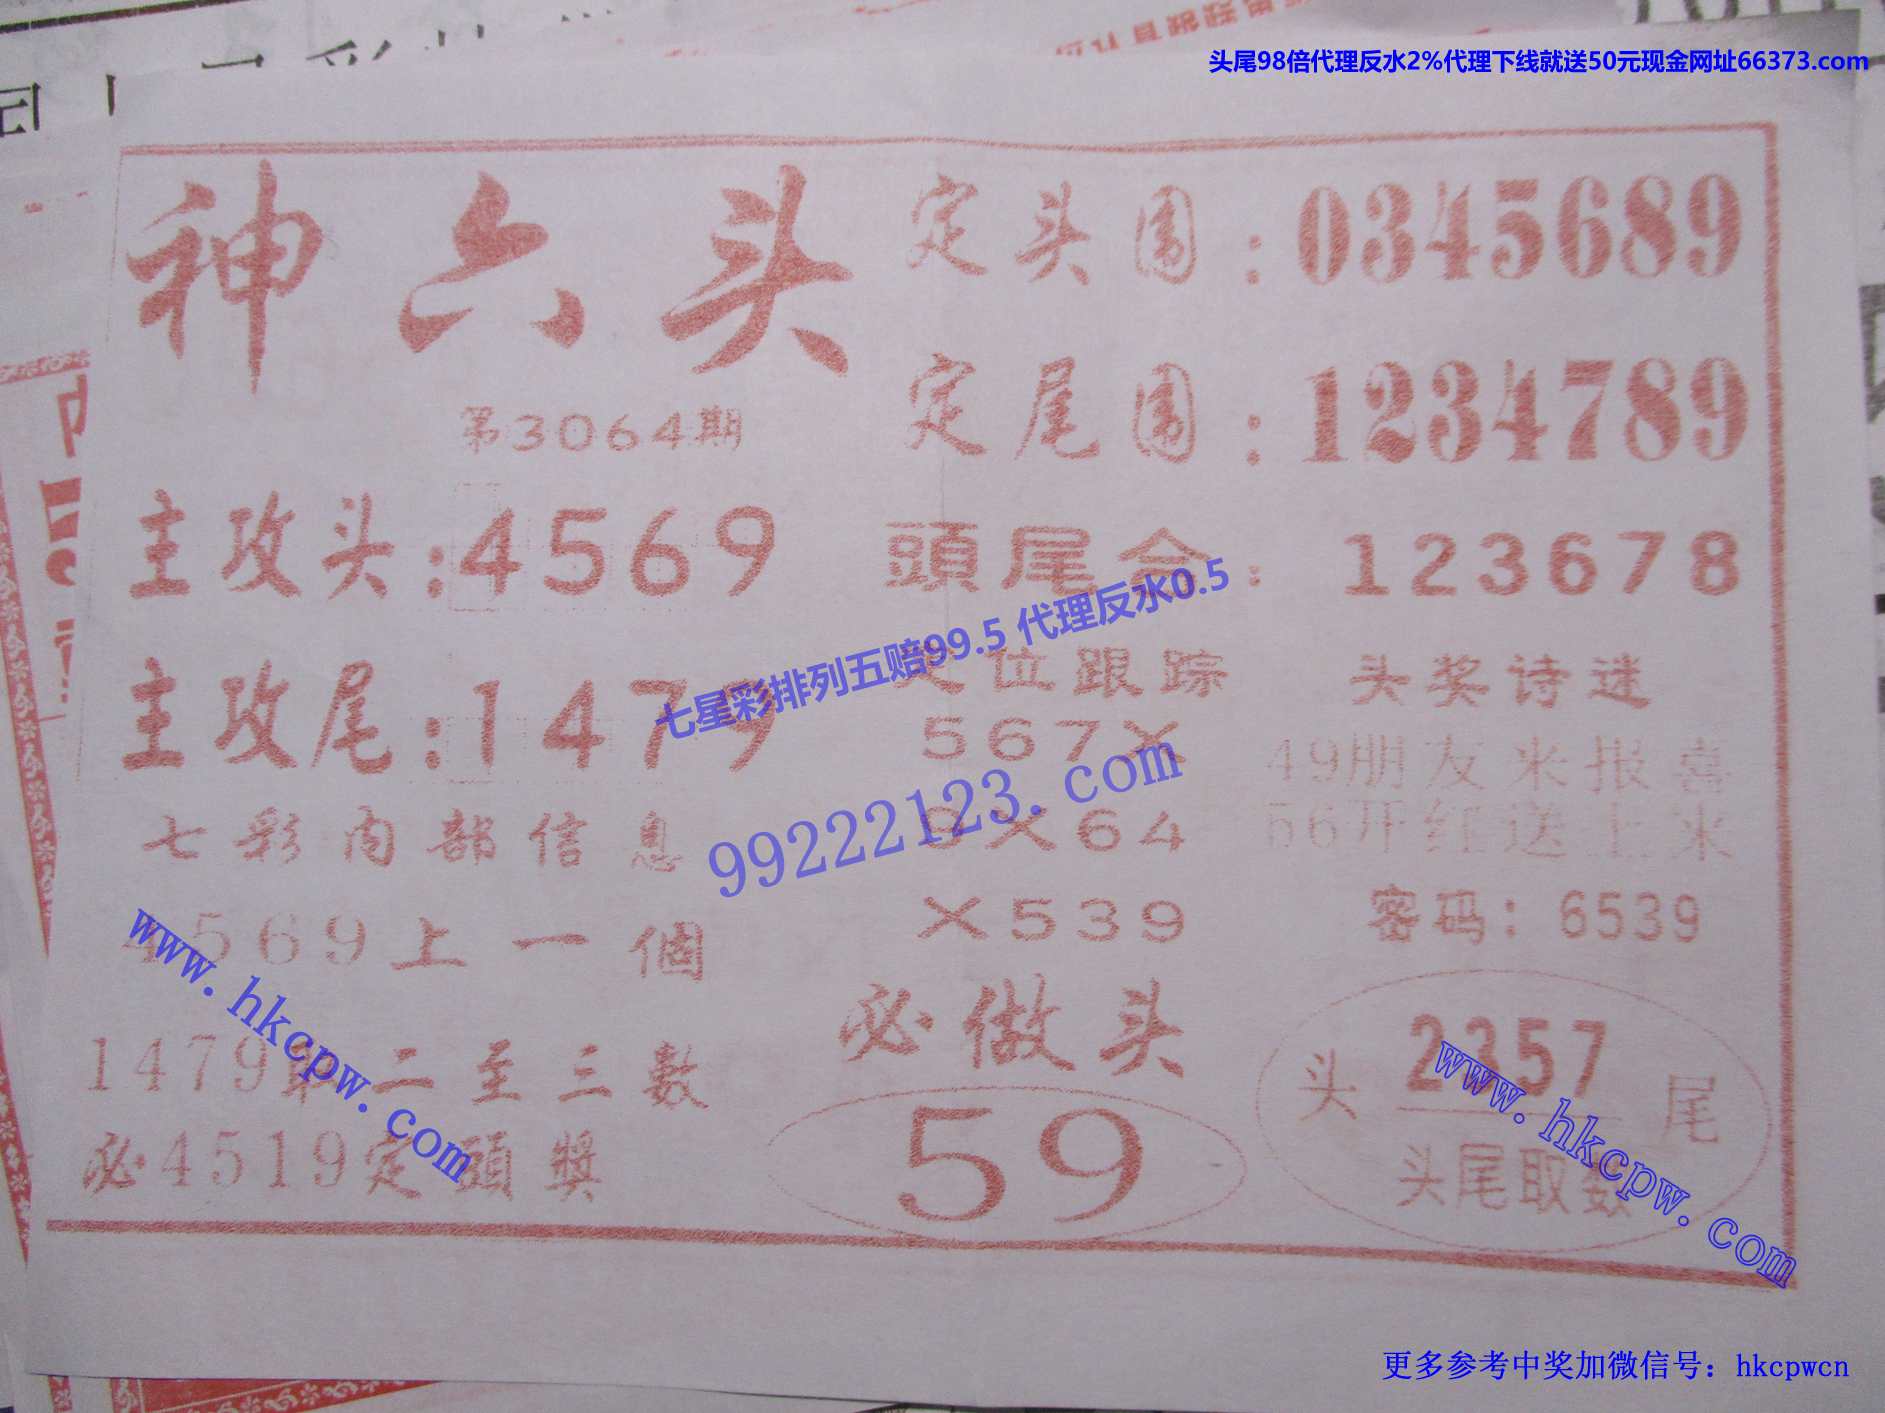 头尾98倍代理反水2%代理下线就送50元现金网址66373.com
神六头
第3064期
定头围:0345689
定尾围:1234789
主攻头:4569
頭尾合:123678
主攻尾:1479
七星彩排列五赔99.5 代理反水0.5
99222123.com
七彩内部信息
4569上一個
1479 二至三數
必4519定頭獎
位跟踪
567X
X64
X539
必做头
59
头奖诗迷
49朋友来报喜
56开红送上米
密码:6539
头 2357 尾
头尾取数
www.hkcpw.com
www.hkcpw.com
更多参考中奖加微信号:hkcpwcn